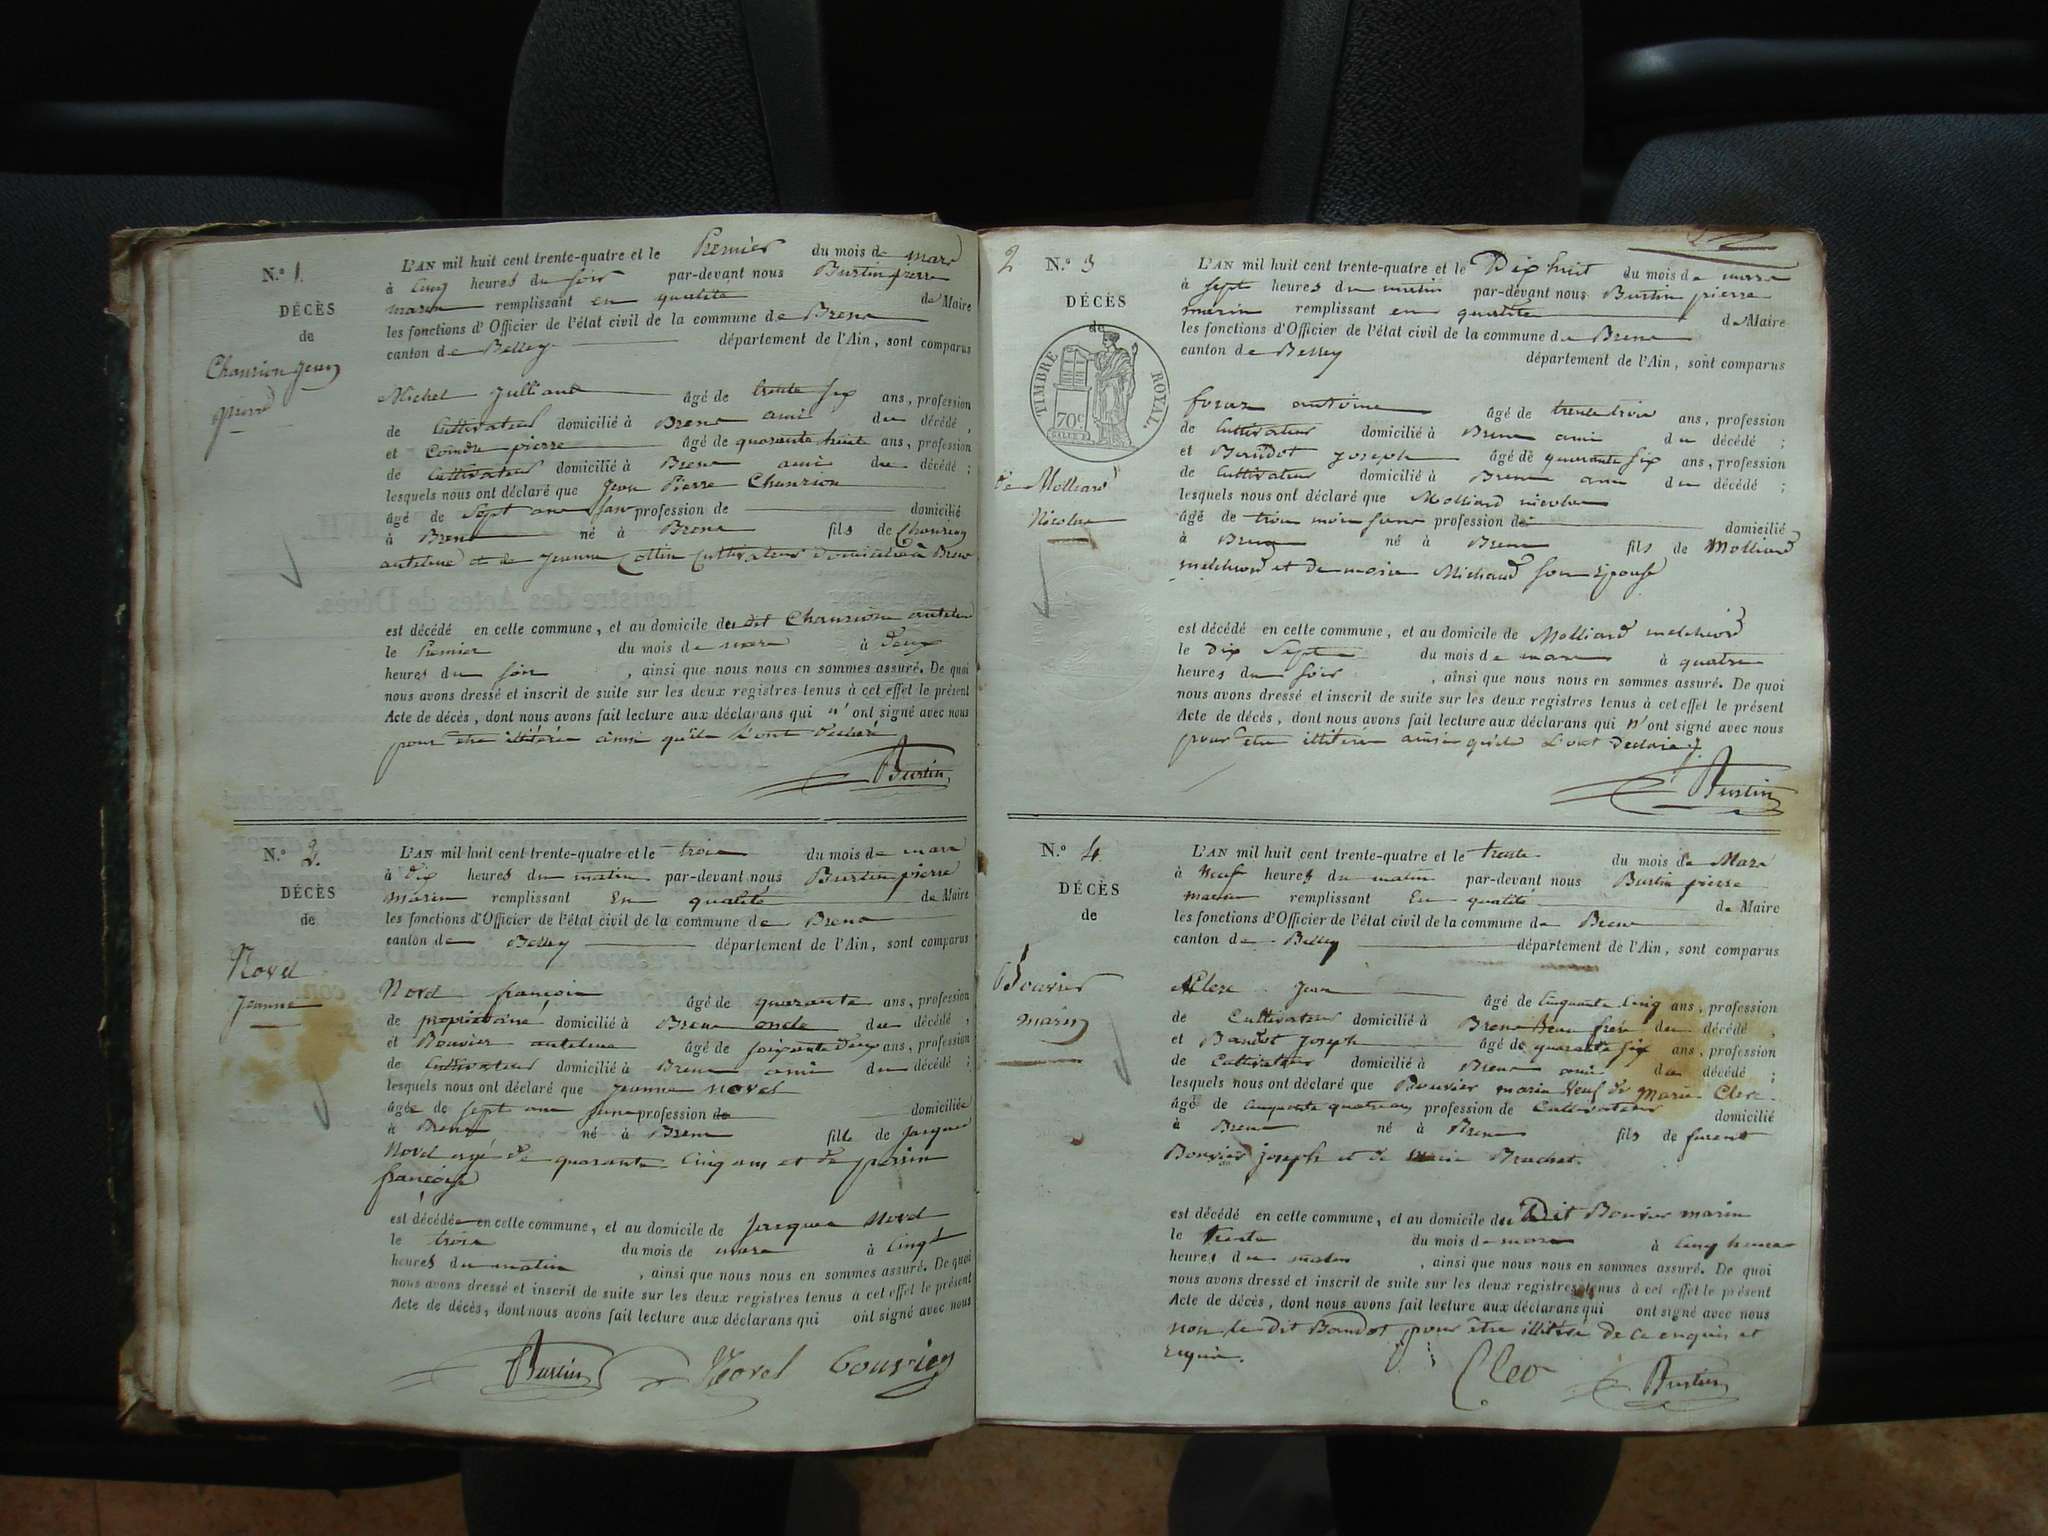 N.º 1.
DÉCÈS
de
Chanrion Jean
pierre
L'AN mil huit cent trente-quatre et le Premier du mois de mars
à cinq heures du soir par-devant nous Burtin pierre
marin remplissant en qualité de Maire
les fonctions d'Officier de l'état civil de la commune de Brens
canton de Belley département de l'Ain, sont comparus
Michel Julliand âgé de trente six ans, profession
de Cultivateur domicilié à Brens ami du décédé,
et Coindre pierre âgé de quarante huit ans, profession
de Cultivateur domicilié à Brens ami du décédé;
lesquels nous ont déclaré que Jean Pierre Chanrion
âgé de Sept ans sans profession de domicilié
à Brens né à Brens fils de Chanrion
antelme et de Jeanne Collin Cultivateur domicilié à Brens
est décédé en cette commune, et au domicile du dit Chanrion antelme
le Premier du mois de mars à deux
heures du soir, ainsi que nous nous en sommes assuré. De quoi
nous avons dressé et inscrit de suite sur les deux registres tenus à cet effet le présent
Acte de décès, dont nous avons fait lecture aux déclarans qui n'ont signé avec nous
pour être illitéré ainsi qu'ils l'ont déclaré
Burtin
N.º 2.
DÉCÈS
de
Novel
Jeanne
L'AN mil huit cent trente-quatre et le trois du mois de mars
à dix heures du matin par-devant nous Burtin pierre
marin remplissant En qualité de Maire
les fonctions d'Officier de l'état civil de la commune de Brens
canton de Belley département de l'Ain, sont comparus
Novel françois âgé de quarante ans, profession
de propriétaire domicilié à Brens oncle du décédé,
et Bouvier antelme âgé de soixante deux ans, profession
de Cultivateur domicilié à Brens ami du décédé;
lesquels nous ont déclaré que Jeanne Novel
âgée de sept ans sans profession de domiciliée
à Brens né à Brens fille de Jacques
Novel agé de quarante Cinq ans et de perrin
françoise
est décédée en cette commune, et au domicile de Jacques Novel
le trois du mois de mars à Cinq
heures du matin, ainsi que nous nous en sommes assuré. De quoi
nous avons dressé et inscrit de suite sur les deux registres tenus à cet effet le présent
Acte de décès, dont nous avons fait lecture aux déclarans qui ont signé avec nous
Burtin Novel bouvier
2
N.º 3
DÉCÈS
de
TIMBRE ROYAL.
70c
de Molliard
Nicolas
L'AN mil huit cent trente-quatre et le Dix huit du mois de mars
à sept heures du matin par-devant nous Burtin pierre
marin remplissant en qualité de Maire
les fonctions d'Officier de l'état civil de la commune de Brens
canton de Belley département de l'Ain, sont comparus
antoine âgé de trente trois ans, profession
de Cultivateur domicilié à Brens ami du décédé;
et Baudot Joseph âgé de quarante six ans, profession
de Cultivateur domicilié à Brens ami du décédé;
lesquels nous ont déclaré que Molliard nicolas
âgé de trois mois sans profession de domicilié
à Brens né à Brens fils de Molliard
melchiord et de marie Michaud son Epouse
est décédé en cette commune, et au domicile de Molliard melchiord
le Dix Sept du mois de mars à quatre
heures du soir, ainsi que nous nous en sommes assuré. De quoi
nous avons dressé et inscrit de suite sur les deux registres tenus à cet effet le présent
Acte de décès, dont nous avons fait lecture aux déclarans qui n'ont signé avec nous
pour être illitéré ainsi qu'ils l'ont déclaré
Burtin
N.º 4.
DÉCÈS
de
Bouvier
marin
L'AN mil huit cent trente-quatre et le trente du mois de Mars
à Neuf heures du matin par-devant nous Burtin pierre
marin remplissant En qualité de Maire
les fonctions d'Officier de l'état civil de la commune de Brens
canton de Belley département de l'Ain, sont comparus
Clerc Jean âgé de Cinquante Cinq ans, profession
de Cultivateur domicilié à Brens Beau frère du décédé,
et Baudot Joseph âgé de quarante six ans, profession
de Cultivateur domicilié à Brens ami du décédé;
lesquels nous ont déclaré que Bouvier marin Veuf de Marie Clerc
âgé de cinquante quatre ans profession de Cultivateur domicilié
à Brens né à Brens fils de furent
Bouvier Joseph et de marie Brachet
est décédé en cette commune, et au domicile du Dit Bouvier marin
le trente du mois de mars à Cinq heures
heures du matin, ainsi que nous nous en sommes assuré. De quoi
nous avons dressé et inscrit de suite sur les deux registres tenus à cet effet le présent
Acte de décès, dont nous avons fait lecture aux déclarans qui ont signé avec nous
non le dit Baudot pour être illitéré de ce enquis et
requis.
Clerc Burtin